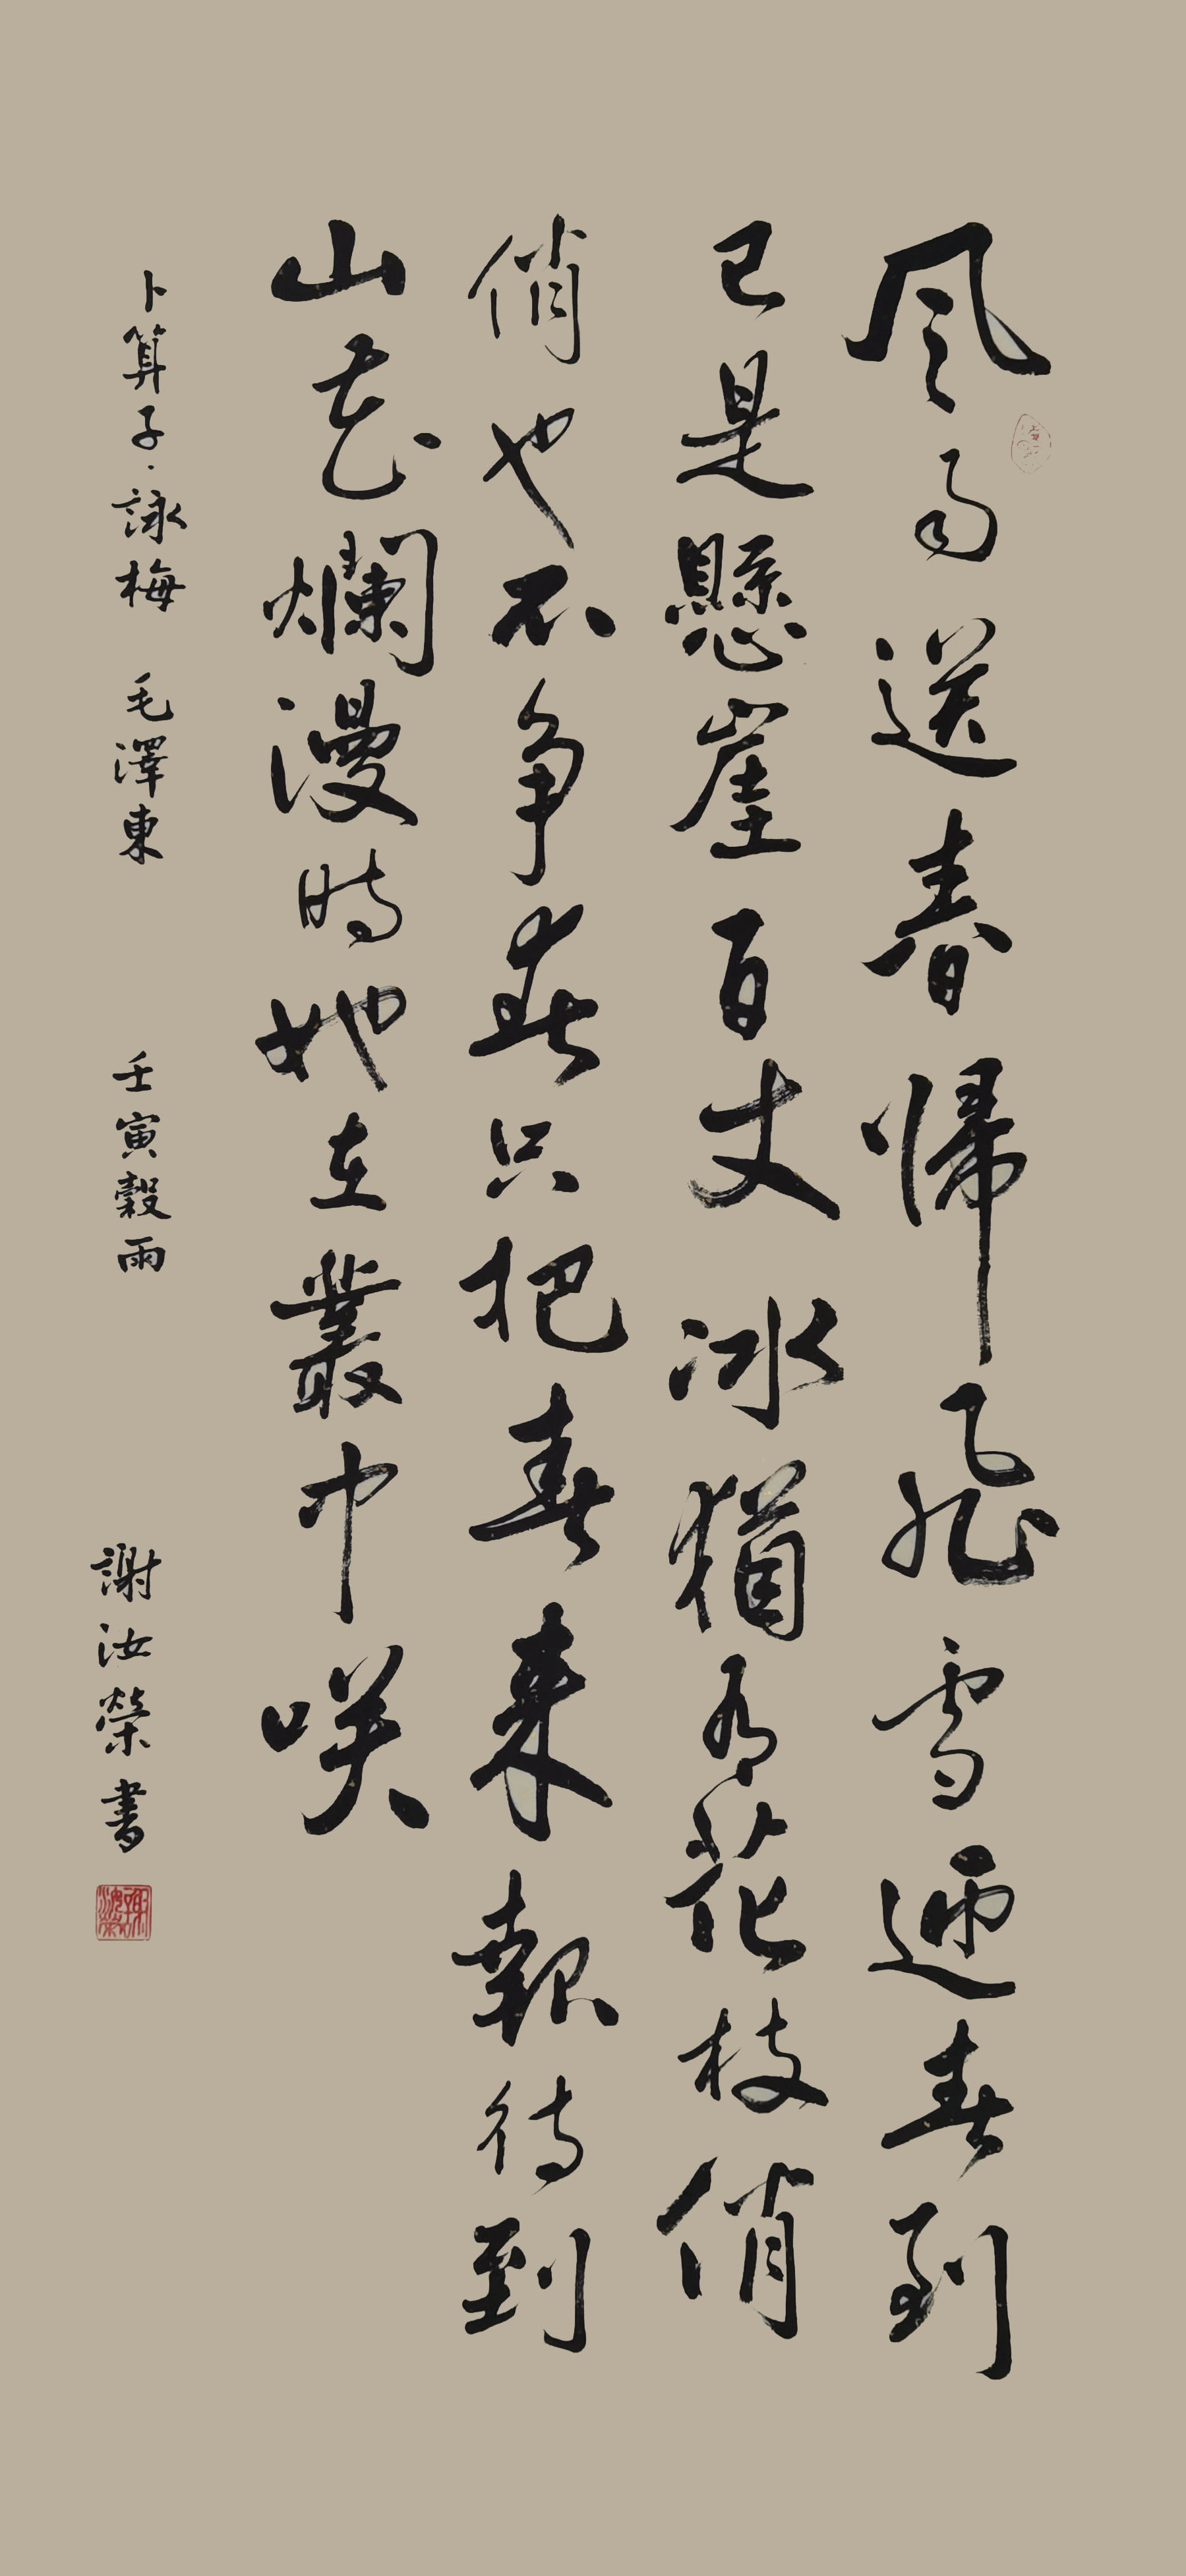 风雨送春歸飛雪迎春到
已是懸崖百丈冰猶有花枝俏
俏也不争春只把春来報待到
山花爛漫時她在叢中咲
卜算子·詠梅 毛澤東 壬寅穀雨 謝汝榮書
謝汝榮